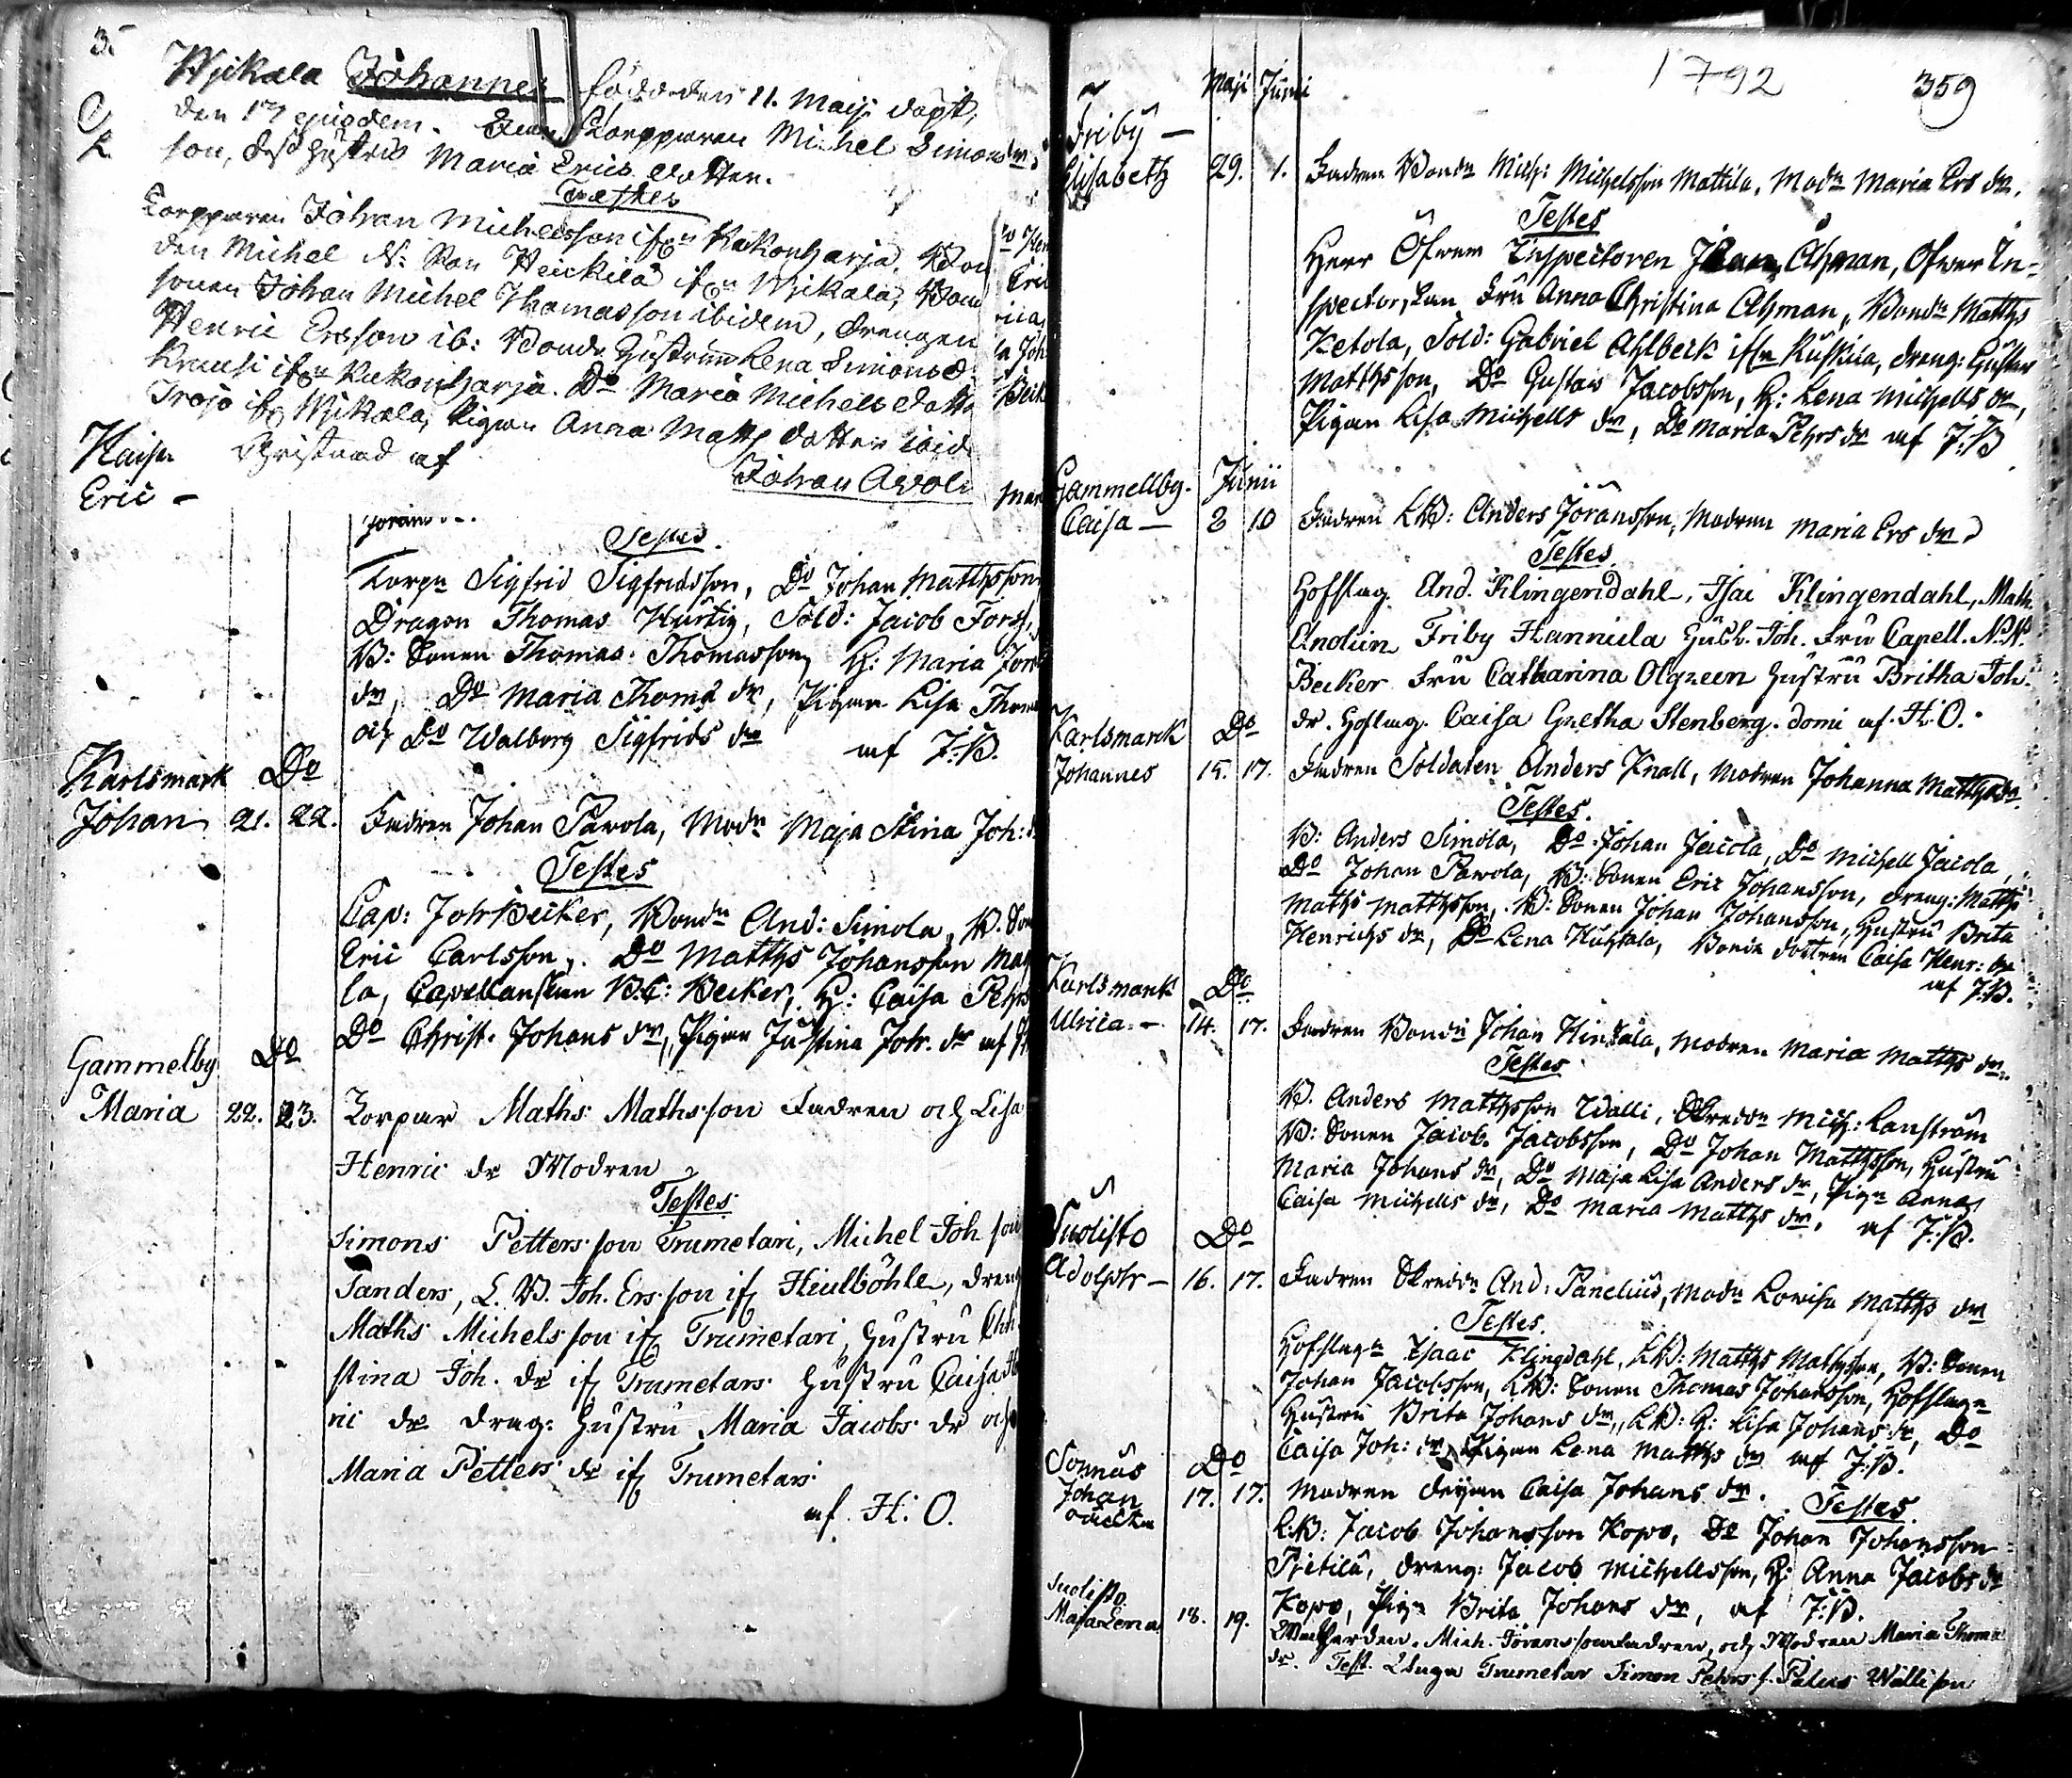 35
Wickala Johannes född den 11. Maij döpt,
den 17 ejusdem.
Torpparen Michel Simons
son, dess hustru Maria Erics dotter.
Testes
Torpparen Johan Michelsson ifrn Kukonharja,
den Michel Heickilä ifrn Wickala,
sonen Johan Michel Thomasson ibidem, drengen
Henric Ersson ib: Bonde hustrun Lena Simons d
ifrn Kukonharja. Do Maria Michels dotter
ifr Wickala, Pigan Anna Matts dotter ibid
Christnad af
Johan
Kaisa
Eric –
Testes.
Torpn Sigfrid Sigfridsson, Do Johan Matthsson,
Dragon Thomas Hurtig, Sold: Jacob
B: Sonen Thomas Thomasson, H: Maria
dr, Do Maria Thoms dr, Pigan Lisa
och Do Walborg Sigfrids dr af J:B.
Karlsmark Do
Johan 21. 22. Fadren Johan Pavola, Modn Maja Stina Joh:
Testes
Cap: Joh Becker, Bondn And: Simola, B. Son
Eric Carlsson, Do Matths Johansson
la, Capellanskan B.C: Becker, H: Caisa Pehrs
Do Christ. Johans dr, Pigan Justina Joh. dr af
Gammelby Do
Maria 22. 23. Torpar Maths Mathsson Fadren och Lisa
Henric dr Modren
Testes
Simons Petters son Trumetari, Michel Joh son
Sanders, L.B. Joh. Ers son if Hiulböhle, dreng
Maths Michels son if Trumetari, hustru Chri
stina Joh. dr if Trumetars hustru Caisa
ric dr drag: hustru Maria Jacobs dr och
Maria Petters dr if Trumetars
af. H. O.
1792 359
Maji Junii
Friby –
Elisabeth 29. 1. Fadren Bondn Mich: Michelsson Mattila, Modn Maria Ers dr.
Testes
Herr Öfwer Inspectoren Åhman, Öfwer In-
spectorskan Fru Anna Christina Åhman, Bondn Matths
Ketola, Sold: Gabriel Ahlbeck ifrn Kuskila, dreng: Gustav
Matthsson, Do Gustav Jacobsson, H: Lena Michells dr,
Pigan Lisa Michells dr, Do Maria Pehrs dr af J:B
Gammelby. Junii
Caisa – 8 10 Fadren LB: Anders Jöransson, Modren Maria Ers dr
Testes
Hofslag. And. Klingendahl, Isac Klingendahl, Math.
Friby Hannula Joh. Fru Capell. N.N.
Becker Fru Catharina Olgreen hustru Britha Joh.
dr. Hofslag. Caisa Gretha Stenberg. domi af. H. O.
Karlsmark Do
Johannes 15. 17. Fadren Soldaten Anders Knall, Modren Johanna Matthsdr.
Testes.
B: Anders Simola, Do Johan Jacola, Do Michell Jacola,
Do Johan Pavola, B: Sonen Eric Johansson, dreng: Matths
Maths Matthsson, B: Sonen Johan Johansson, hustru Brita
Henrichs dr, Do Lena Huhtala, Bonde dottren Caisa Henr: dr
af J:B.
Karlsmark Do
Ulrica – 14. 17. Fadren Bondn Johan Hintzala, Modren Maria Matths dr.
Testes
B. Anders Matthsson Walli, Skreddn Mich: Lanström
B: Sonen Jacob Jacobsson, Do Johan Matthsson, hustru
Maria Johans dr, Do Maja Lisa Anders dr, Pign Anna
Caisa Michells dr, Do Maria Matths dr, af J:B.
Suolisto Do
Adolph – 16. 17. Fadren Skreddn And: Panelius, Modn Lovisa Matths dr
Testes.
Hofslagn Isaac Klingdahl, LB: Matths Mathsson, B: Sonen
Johan Jacobsson, LB: Sonen Thomas Johansson, Hofslagn
hustru Brita Johans dr, LB: H: Lisa Johans dr, Do
Caisa Joh: dr, Pigan Lena Matths dr af J:B.
Sonnäs Do
Johan
oäckta 17. 17. Modren dejan Caisa Johans dr. Testes
LB: Jacob Johansson Kopo, Do Johan Johansson
Pietilä, dreng: Jacob Michellsson, H: Anna Jacobs dr
Kopo, Pign Brita Johans dr, af J:B.
Suolisto
Maja Lena 18. 19. Mich. Jöransson Fadren, och Modren Maria Thoms
dr. Test. Trumetar Simon Pehrs s.